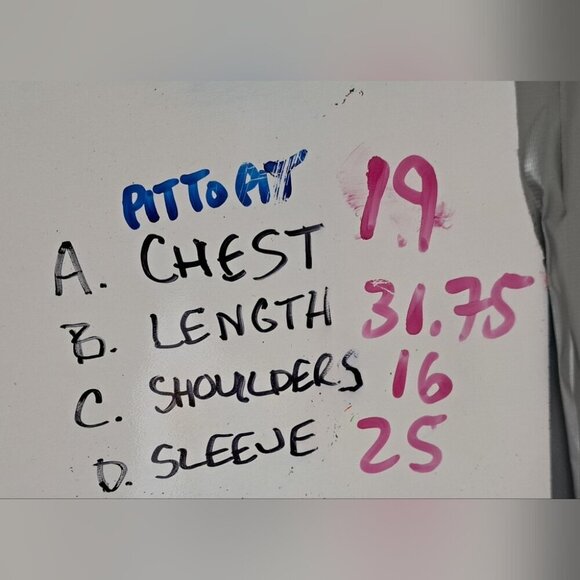 PIT TO PIT
A. CHEST 19
B. LENGTH 31.75
C. SHOULDERS 16
D. SLEEVE 25